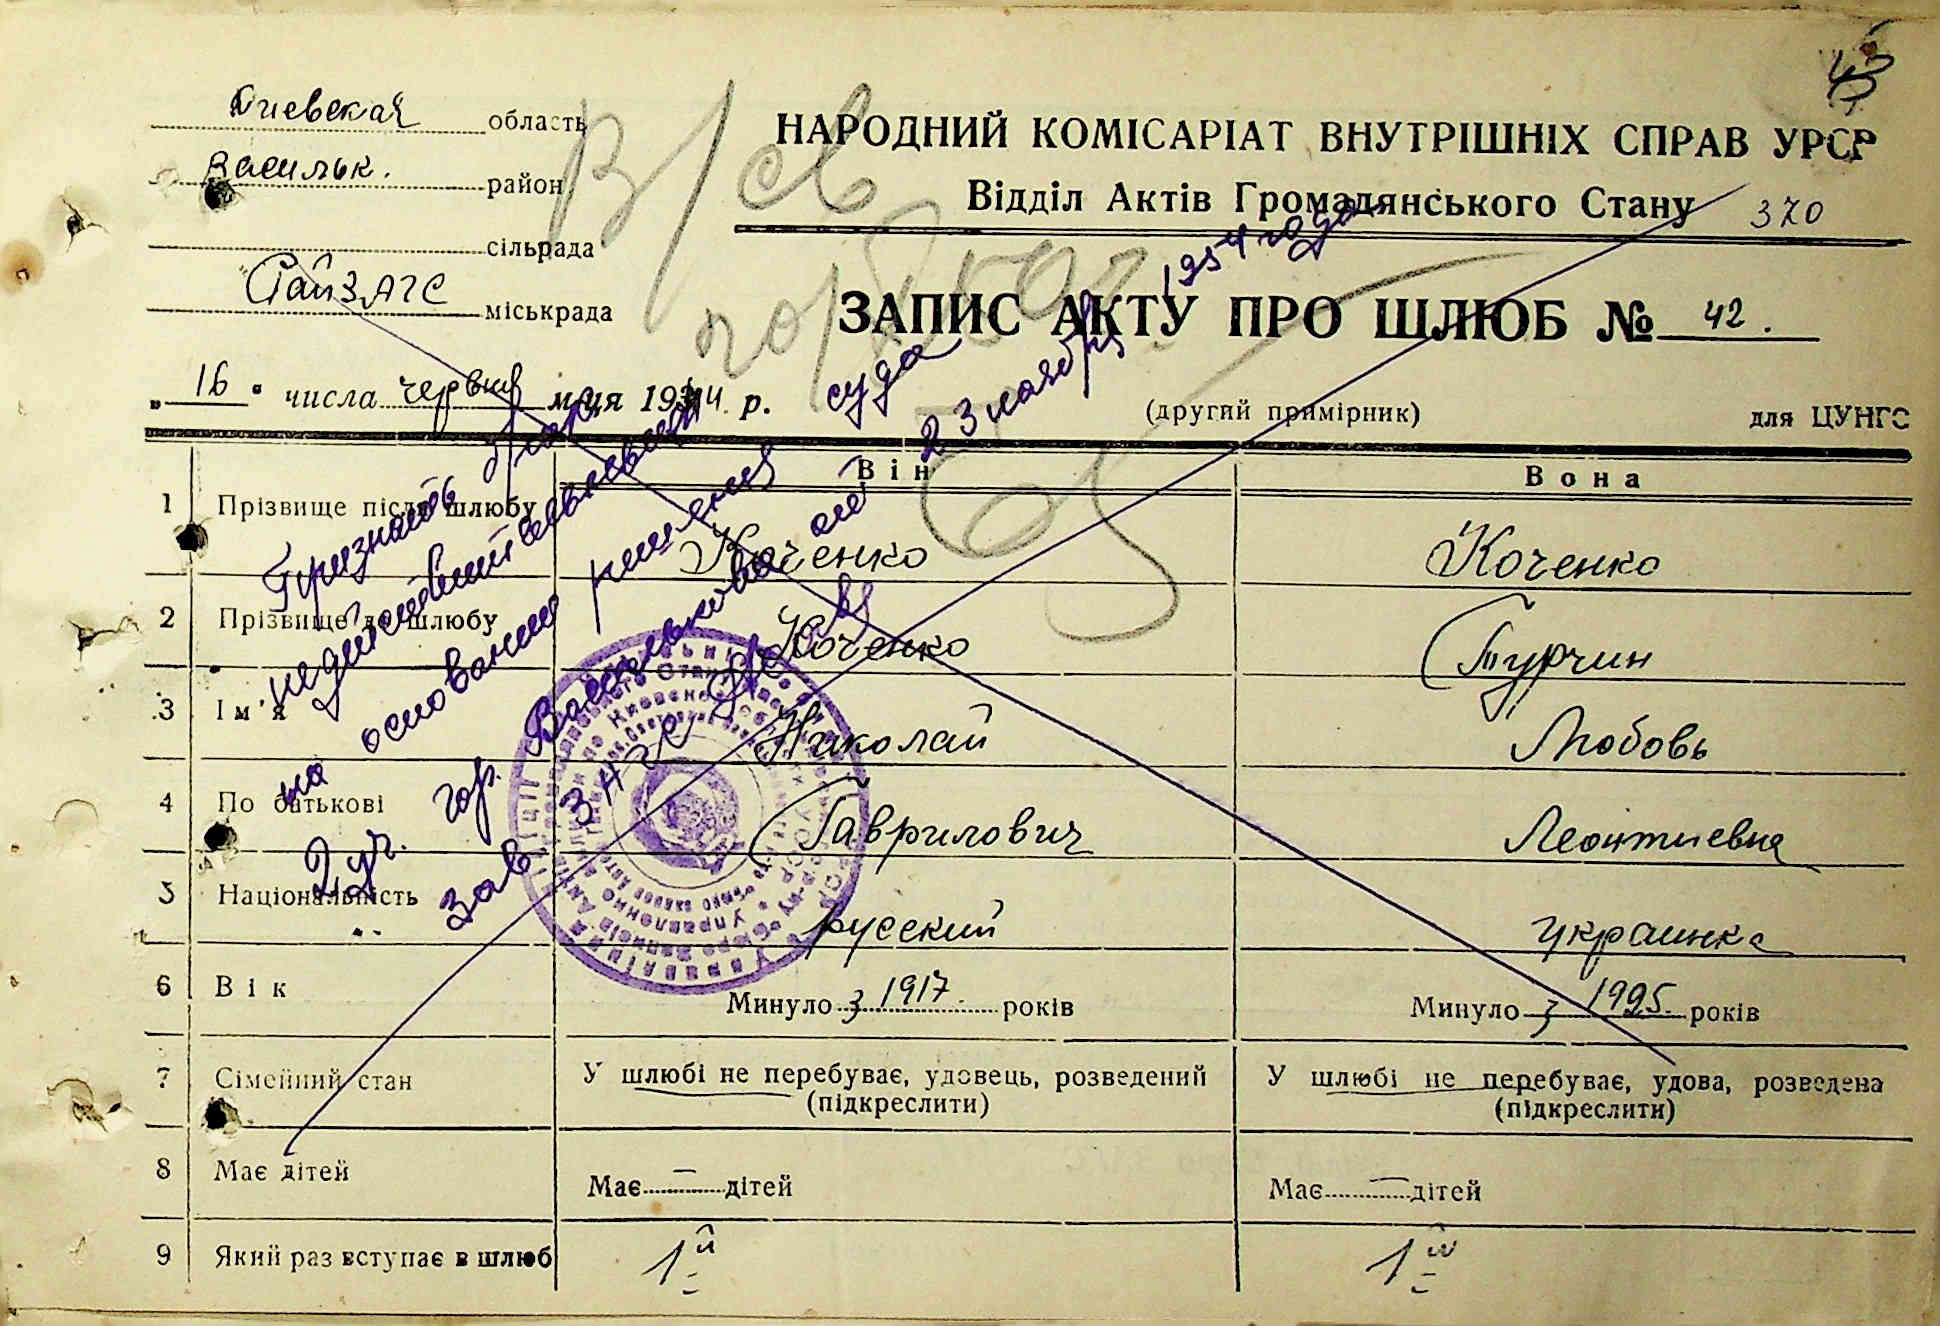 Киевская область
Васильк. район
сільрада
РайЗАГС міськрада
45
НАРОДНИЙ КОМІСАРІАТ ВНУТРІШНІХ СПРАВ УРСР
Відділ Актів Громадянського Стану 370
ЗАПИС АКТУ ПРО ШЛЮБ № 42.
„16" числа червня м-ця 1944 р.
(другий примірник) для ЦУНГО
Він Вона
1 Прізвище після шлюбу Коченко Коченко
2 Прізвище до шлюбу Коченко Турчин
3 Ім'я Николай Любовь
4 По батькові Гаврилович Леонтиевна
5 Національність русский украинка
6 Вік Минуло з 1917. років Минуло з 1925. років
7 Сімейний стан У шлюбі не перебуває, удовець, розведений У шлюбі не перебуває, удова, розведена
(підкреслити) (підкреслити)
8 Має дітей Має — дітей Має — дітей
9 Який раз вступає в шлюб 1й 1й
Признать брак
недействительным
на основании решения суда
2 уч. гор. Василькова от 23 ноября 1954 года
Зав. ЗАГС